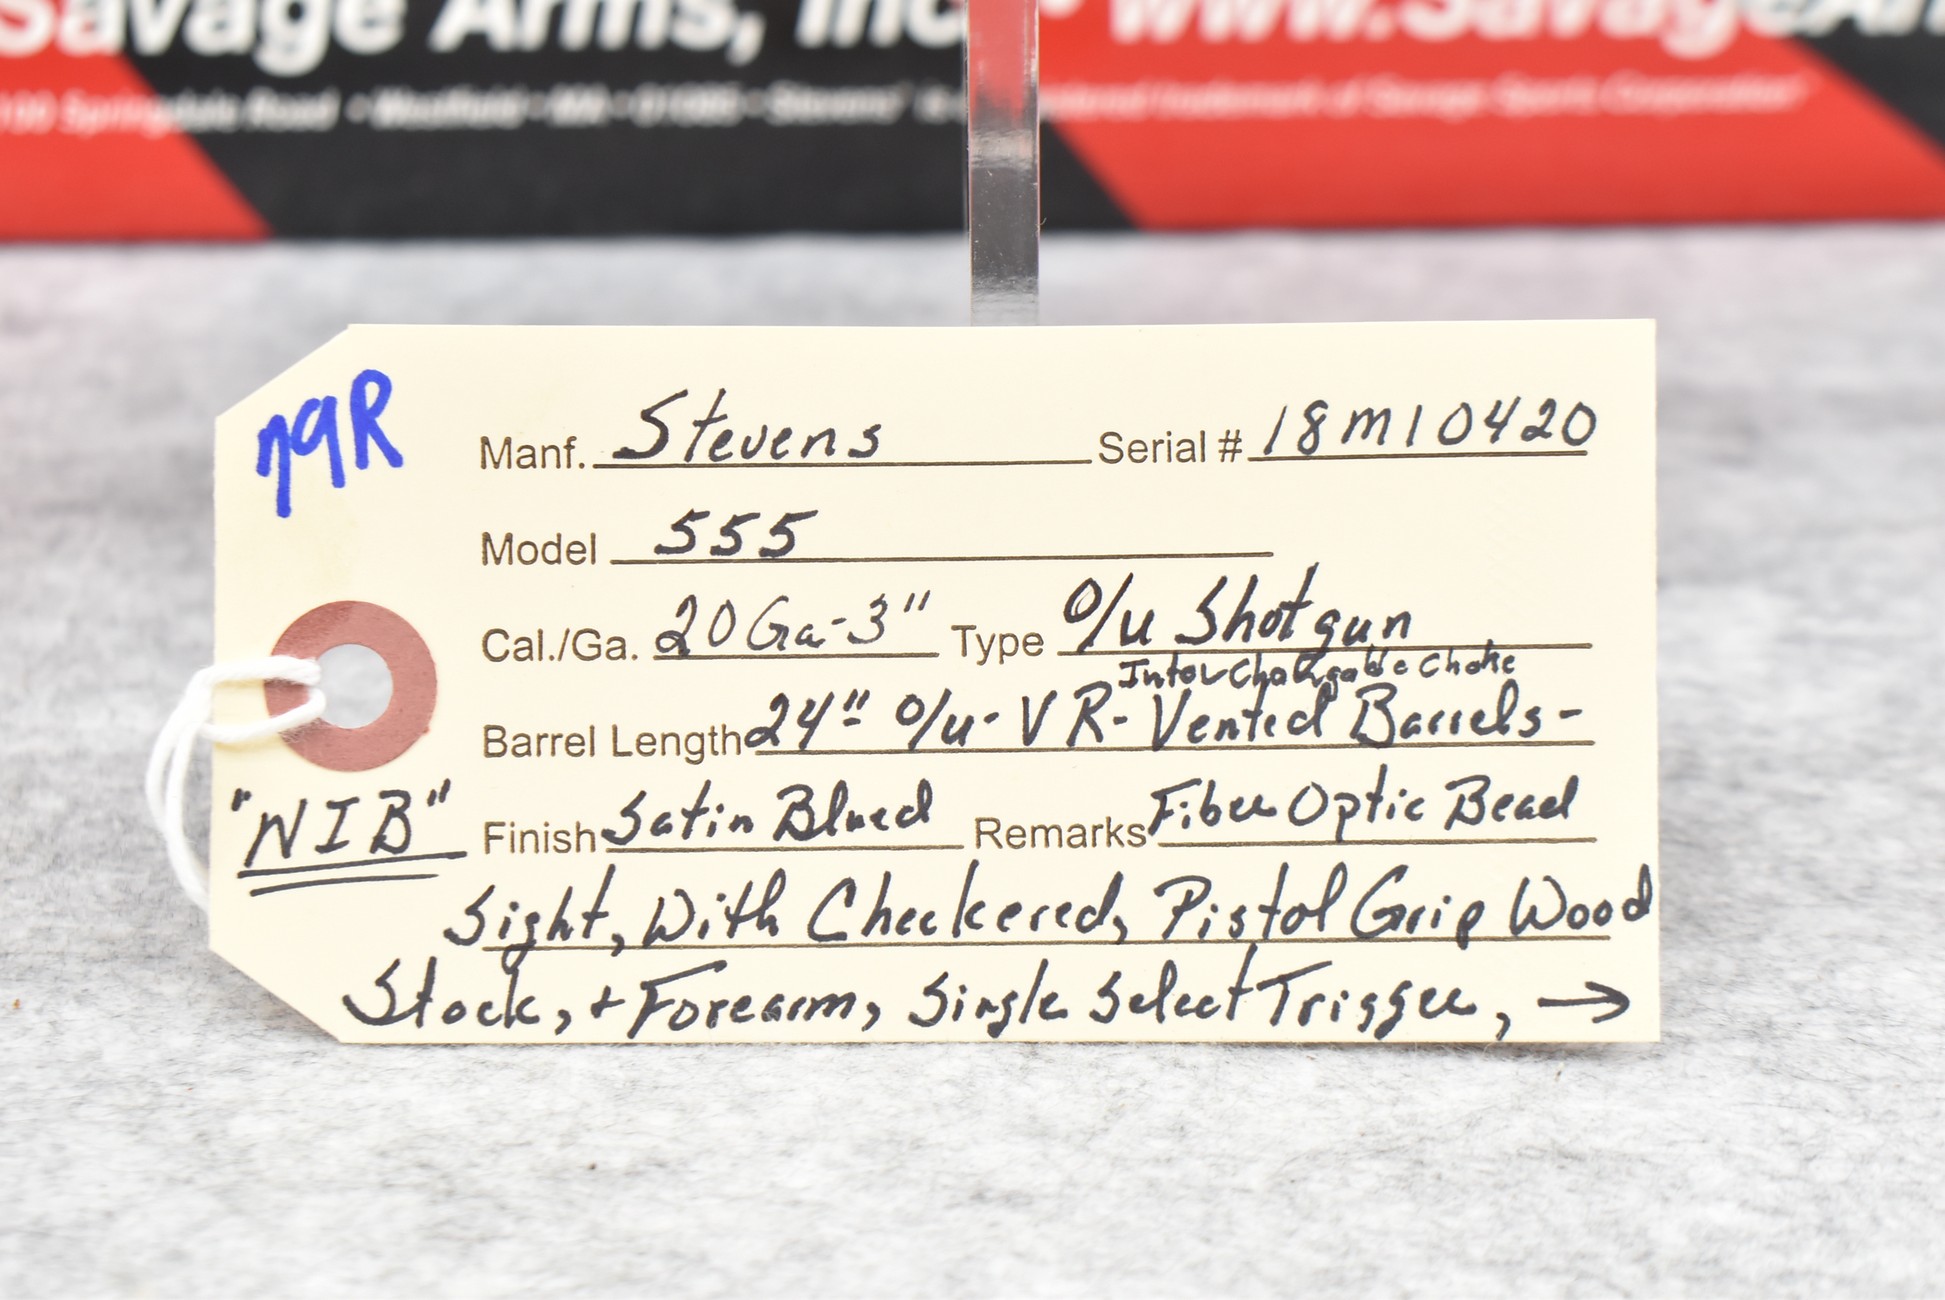 Savage Arms, Inc. • www.SavageAr
100 Springdale Road • Westfield • MA • 01085 • Stevens is registered trademark of Savage Sports Corporation
79R
Manf. Stevens Serial # 18M10420
Model 555
Cal./Ga. 20Ga-3" Type O/u Shotgun
Interchangable Choke
Barrel Length 24" O/u- VR- Vented Barrels-
"NIB" Finish Satin Blued Remarks Fiber Optic Bead
Sight, With Checkered, Pistol Grip Wood
Stock, + Forearm, Single Select Trigger, →